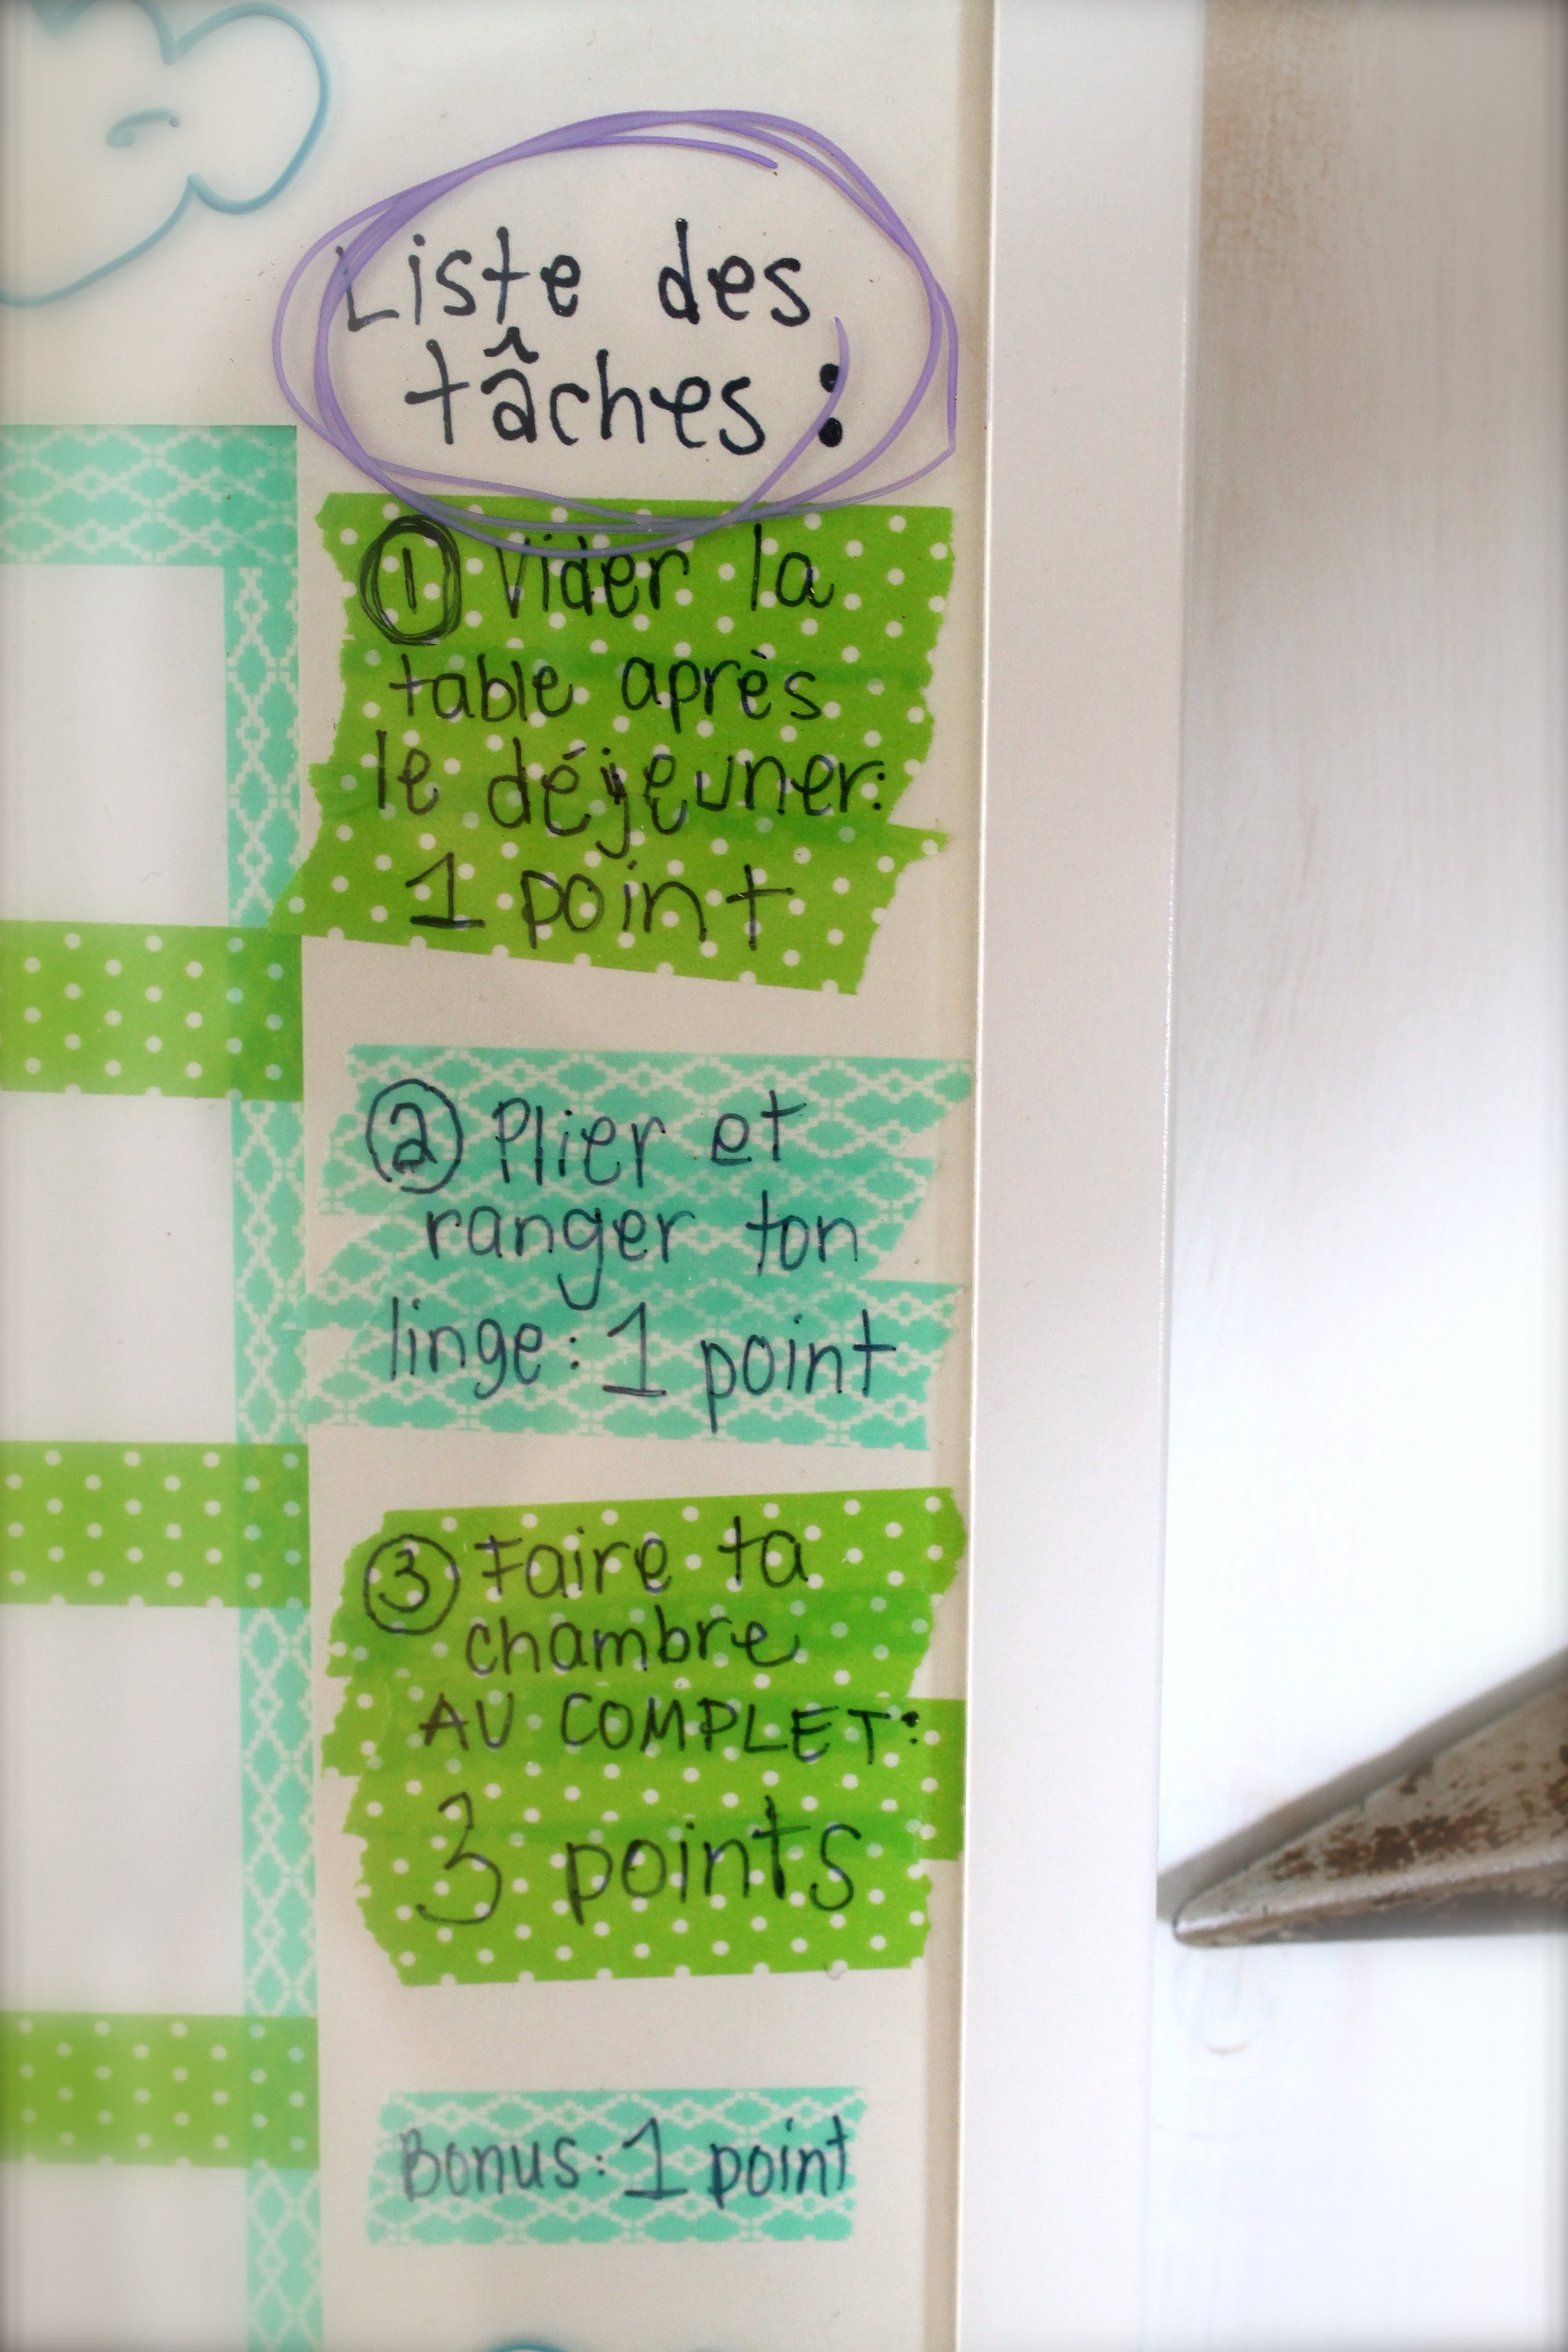 Liste des
tâches :
① Vider la
table après
le déjeuner:
1 point
② Plier et
ranger ton
linge : 1 point
③ Faire ta
chambre
AU COMPLET:
3 points
Bonus : 1 point